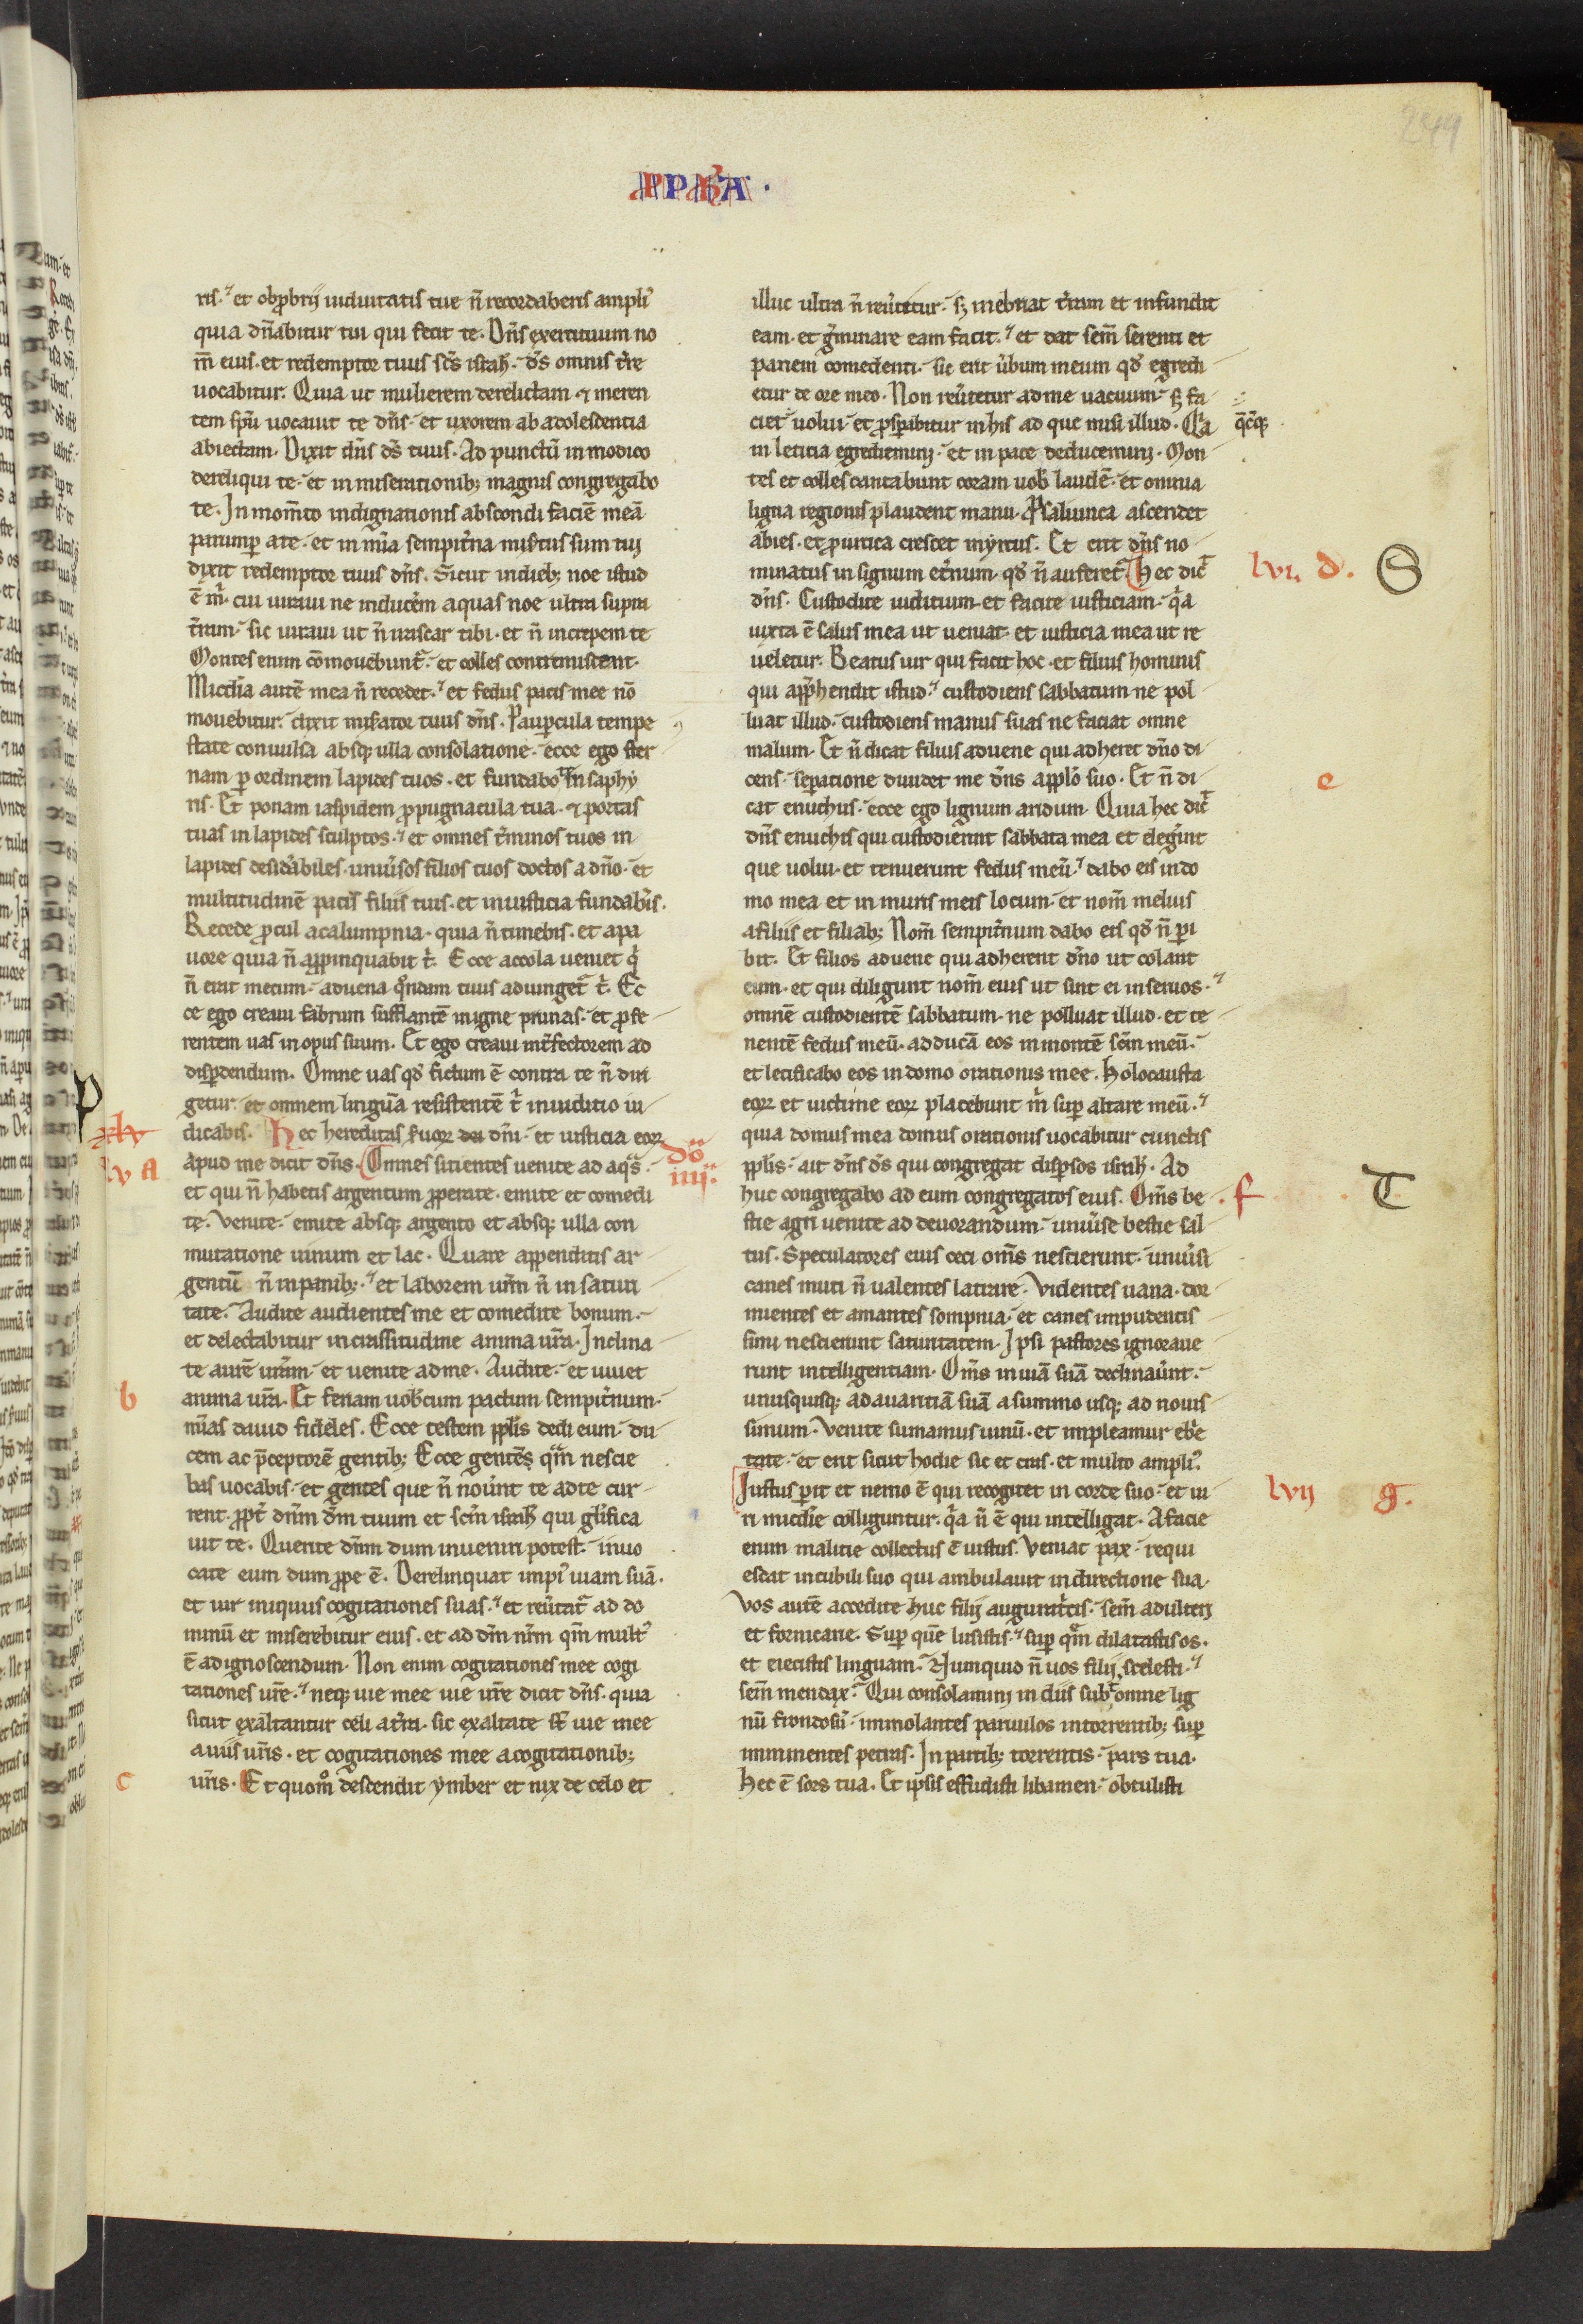 PPhA.
244
ris. et obprobrij uiduitatis tue n̄ recordaberis ampli᾽
quia dn̄abitur tui qui fecit te. Dn̄s exercituum no
m̄ eius. et redemptor tuus sc̄s israh̄. d̄s omnis t̄re
uocabitur. Quia ut mulierem derelictam ⁊ meren
tem sp̄u uocauit te dn̄s. et uxorem ab adolescentia
abiectam. Dixit dn̄s d̄s tuus. Ad punctū in modico
dereliqui te. et in miserationib; magnis congregabo
te. In mom̄to indignationis abscondi faciē meā
parumꝑ a te. et in mīa sempit̄na mis̄tus sum tui
dixit redemptor tuus dn̄s. Sicut in dieb; noe istud
ē m̄. cui iuraui ne inducēm aquas noe ultra supra
t̄ram. sic iuraui ut n̄ irascar tibi. et n̄ increpem te
Montes enim cōmouebunt᷑. et colles contremiscent.
Miċdia autē mea n̄ recedet. et fedus pacis mee nō
mouebitur. dixit mis̄ator tuus dn̄s. Pauꝑcula tempe
state conuulsa absq; ulla consolatione. ecce ego ster
nam ꝑ ordinem lapides tuos. et fundabo te in saphy
ris. Et ponam iaspidem ꝓpugnacula tua. ⁊ portas
tuas in lapides sculptos. et omnes t̄minos tuos in
lapides desid̄abiles. uniu̅sos filios tuos doctos a dn̄o. et
multitudinē pacis filiis tuis. et in iusticia fundab̄is.
Recede ꝓcul a calumpnia. quia n̄ timebis. et a pa
uore quia n̄ apꝓpinquabit t̄. Ecce accola ueniet q̄
n̄ erat mecum. aduena q̊ndam tuus adiunget᷑ t̄. Ec
ce ego creaui fabrum sufflantē in igne prunas. et ꝓfe
rentem uas in opus suum. Et ego creaui int̄fectorem ad
disꝑdendum. Omne uas qd̄ fictum ē contra te n̄ diri
getur. et omnem linguā resistentē t̄ in iuditio iu
dicabis. Hec hereditas s̄uoꝝ dei dn̄i. et iusticia eoꝝ
apud me dicit dn̄s. Omnes sitientes uenite ad aq̄s.
et qui n̄ habetis argentum ꝓperate. emite et comedi
te. Venite. emite absq; argento et absq; ulla con
mutatione uinum et lac. Quare appenditis ar
gentū n̄ in panib;. et laborem ur̄m n̄ in saturi
tate. Audite audientes me et comedite bonum.
et delectabitur in crassitudine anima ur̄a. Inclina
te aurē ur̄am. et uenite ad me. Audite. et uiuet
anima ur̄a. Et feriam uob̄cum pactum sempit̄num.
mīas dauid fideles. Ecce testem pp̄lis dedi eum. du
cem ac p̄ceptorē gentib; Ecce gentēs q̄m nescie
bas uocabis. et gentes que n̄ nou̅nt te ad te cur
rent. ꝓpt̄ dn̄m dm̄ tuum et scm̄ isrl̄ qui gl̄ifica
uit te. Querite dn̄m dum inueniri potest. inuo
cate eum dum ꝓpe ē. Derelinquat impi᾽ uiam suā.
et uir iniquus cogitationes suas. et reu̅tat᷑ ad do
minū et miserebitur eius. et ad dm̄ nr̄m qm̄ mult᾽
ē ad ignoscendum. Non enim cogitationes mee cogi
tationes ur̄e. neq; uie mee uie ur̄e dicit dn̄s. quia
sicut exaltantur celi a t̄ra. sic exaltate s̄t uie mee
a uiis ur̄is. et cogitationes mee a cogitationib;
ur̄is. Et quom̊ descendit ymber et nix de celo et
P
xlv
lv A
dō
iiij.
b
c
illuc ultra n̄ reu̅tetur. sꝫ inebriat t̄ram et infundit
eam. et g̅minare eam facit. et dat sem̄ serenti et
panem comedenti. sic erit u̅bum meum qd̄ egredi
etur de ore meo. Non reu̅tetur ad me uacuum. sꝫ fa
ciet uolui. et ꝓsꝑabitur in his ad que misi illud. Q̄a
q̄cq;
in leticia egrediemini. et in pace deducemini. Mon
tes et colles cantabunt coram uob̄ laudē. et omnia
ligna regionis plaudent manu. P saliunca ascendet
abies. et ꝓ urtica crescet myrtus. Et erit dn̄s no
minatus in signum et̄num. qd̄ n̄ auferet᷑. Hec dic̄
dn̄s. Custodite iuditium et facite iusticiam. q̄a
iuxta ē salus mea ut ueniat. et iusticia mea ut re
ueletur. Beatus uir qui facit hoc. et filius hominis
qui app̄hendit istud. custodiens sabbatum ne pol
luat illud. custodiens manus suas ne faciat omne
malum. Et n̄ dicat filius aduene qui adheret dn̄o di
cens. seꝑatione diuidet me dn̄s a pp̄lo suo. Et n̄ di
cat enuchus. ecce ego lignum aridum. Quia hec dic̄
dn̄s enuchis qui custodierint sabbata mea et eleg̅int
que uolui. et tenuerunt fedus meū. dabo eis in do
mo mea et in muris meis locum. et nom̄ melius
a filiis et filiab; Nom̄ sempit̄num dabo eis qd̄ n̄ ꝑi
bit. Et filios aduene qui adherent dn̄o ut colant
eum. et qui diligunt nom̄ eius ut sint ei in seruos.
omnē custodientē sabbatum. ne polluat illud. et te
nentē fedus meū. adducā eos in montē scm̄ meū.
et letificabo eos in domo orationis mee. Holocausta
eoꝝ et uictime eoꝝ placebunt m̄ suꝑ altare meū.
quia domus mea domus orationis uocabitur cunctis
pp̄lis. ait dn̄s d̄s qui congregat disꝑsos isrl̄. Ad
huc congregabo ad eum congregatos eius. Om̄s be
stie agri uenite ad deuorandum. uniu̅se bestie sal
tus. Speculatores eius ceci om̄s nescierunt. uniu̅si
canes muti n̄ ualentes latrare. Videntes uana. dor
mientes et amantes sompnia. et canes impudentis
simi nescierunt saturitatem. Ipsi pastores ignoraue
runt intelligentiam. Om̄s in uiā suā declinau̅nt.
unusquisq; ad auaritiā suā a summo usq; ad nouis
simum. Venite sumamus uinū. et impleamur eb̄e
tate. et erit sicut hodie sic et cras. et multo ampli᾽
Iustus ꝑit et nemo ē qui recogitet in corde suo. et ui
ri mic̄die colliguntur. q̄a n̄ ē qui intelligat. A facie
enim malitie collectus ē iustus. Veniat pax. requi
escat in cubili suo qui ambulauit in directione sua.
Vos autē accedite huc filij auguratcis. sem̄ adulteri
et fornicarie. Suꝑ quē lusistis. suꝑ q̄m dilatastis os.
et eiecistis linguam. Numquid n̄ uos filij scelesti.
sem̄ mendax. Qui consolamini in diis subt᷑ omne lig
nū frondosū. immolantes paruulos in torrentib; suꝑ
imminentes petras. In partib; torrentis. pars tua.
Hec ē sors tua. Et ipsis effudisti libamen. obtulisti
lvi d.
S
e
f
T
lvij g.